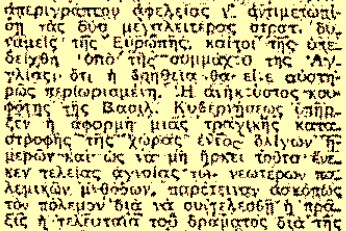 ἀπερίγραπτον ἀφελείας ν' ἀντιμετωπί-
σῃ τὰς δύο μεγαλειτέρας στρατ. δυ-
νάμεις τῆς Εὐρώπης, καίτοι τῆς ὑπε-
δείχθη ὑπὸ τῆς συμμάχο τῆς Ἀγ-
γλίας ὅτι ἡ βοήθεια θὰ εἶνε αὐστη-
ρῶς περιωρισμένη. Ἡ ἀνήκουστος κου-
φότης τῆς Βασιλ. Κυβερνήσεως ὑπῆρ-
ξεν ἡ ἀφορμὴ μιᾶς τραγικῆς κατα-
στροφῆς τῆς χώρας ἐντὸς ὀλίγων ἡ-
μερῶν καὶ ὡς νὰ μὴ ἤρκει τοῦτο ἕνε-
κεν τελείας ἀγνοίας τῶν νεωτέρων πο-
λεμικῶν μεθόδων, παρέτειναν ἀσκόπως
τὸν πόλεμον διὰ νὰ συντελεσθῇ ἡ πρᾶ-
ξις ἡ τελευταία τοῦ δράματος διὰ τῆς